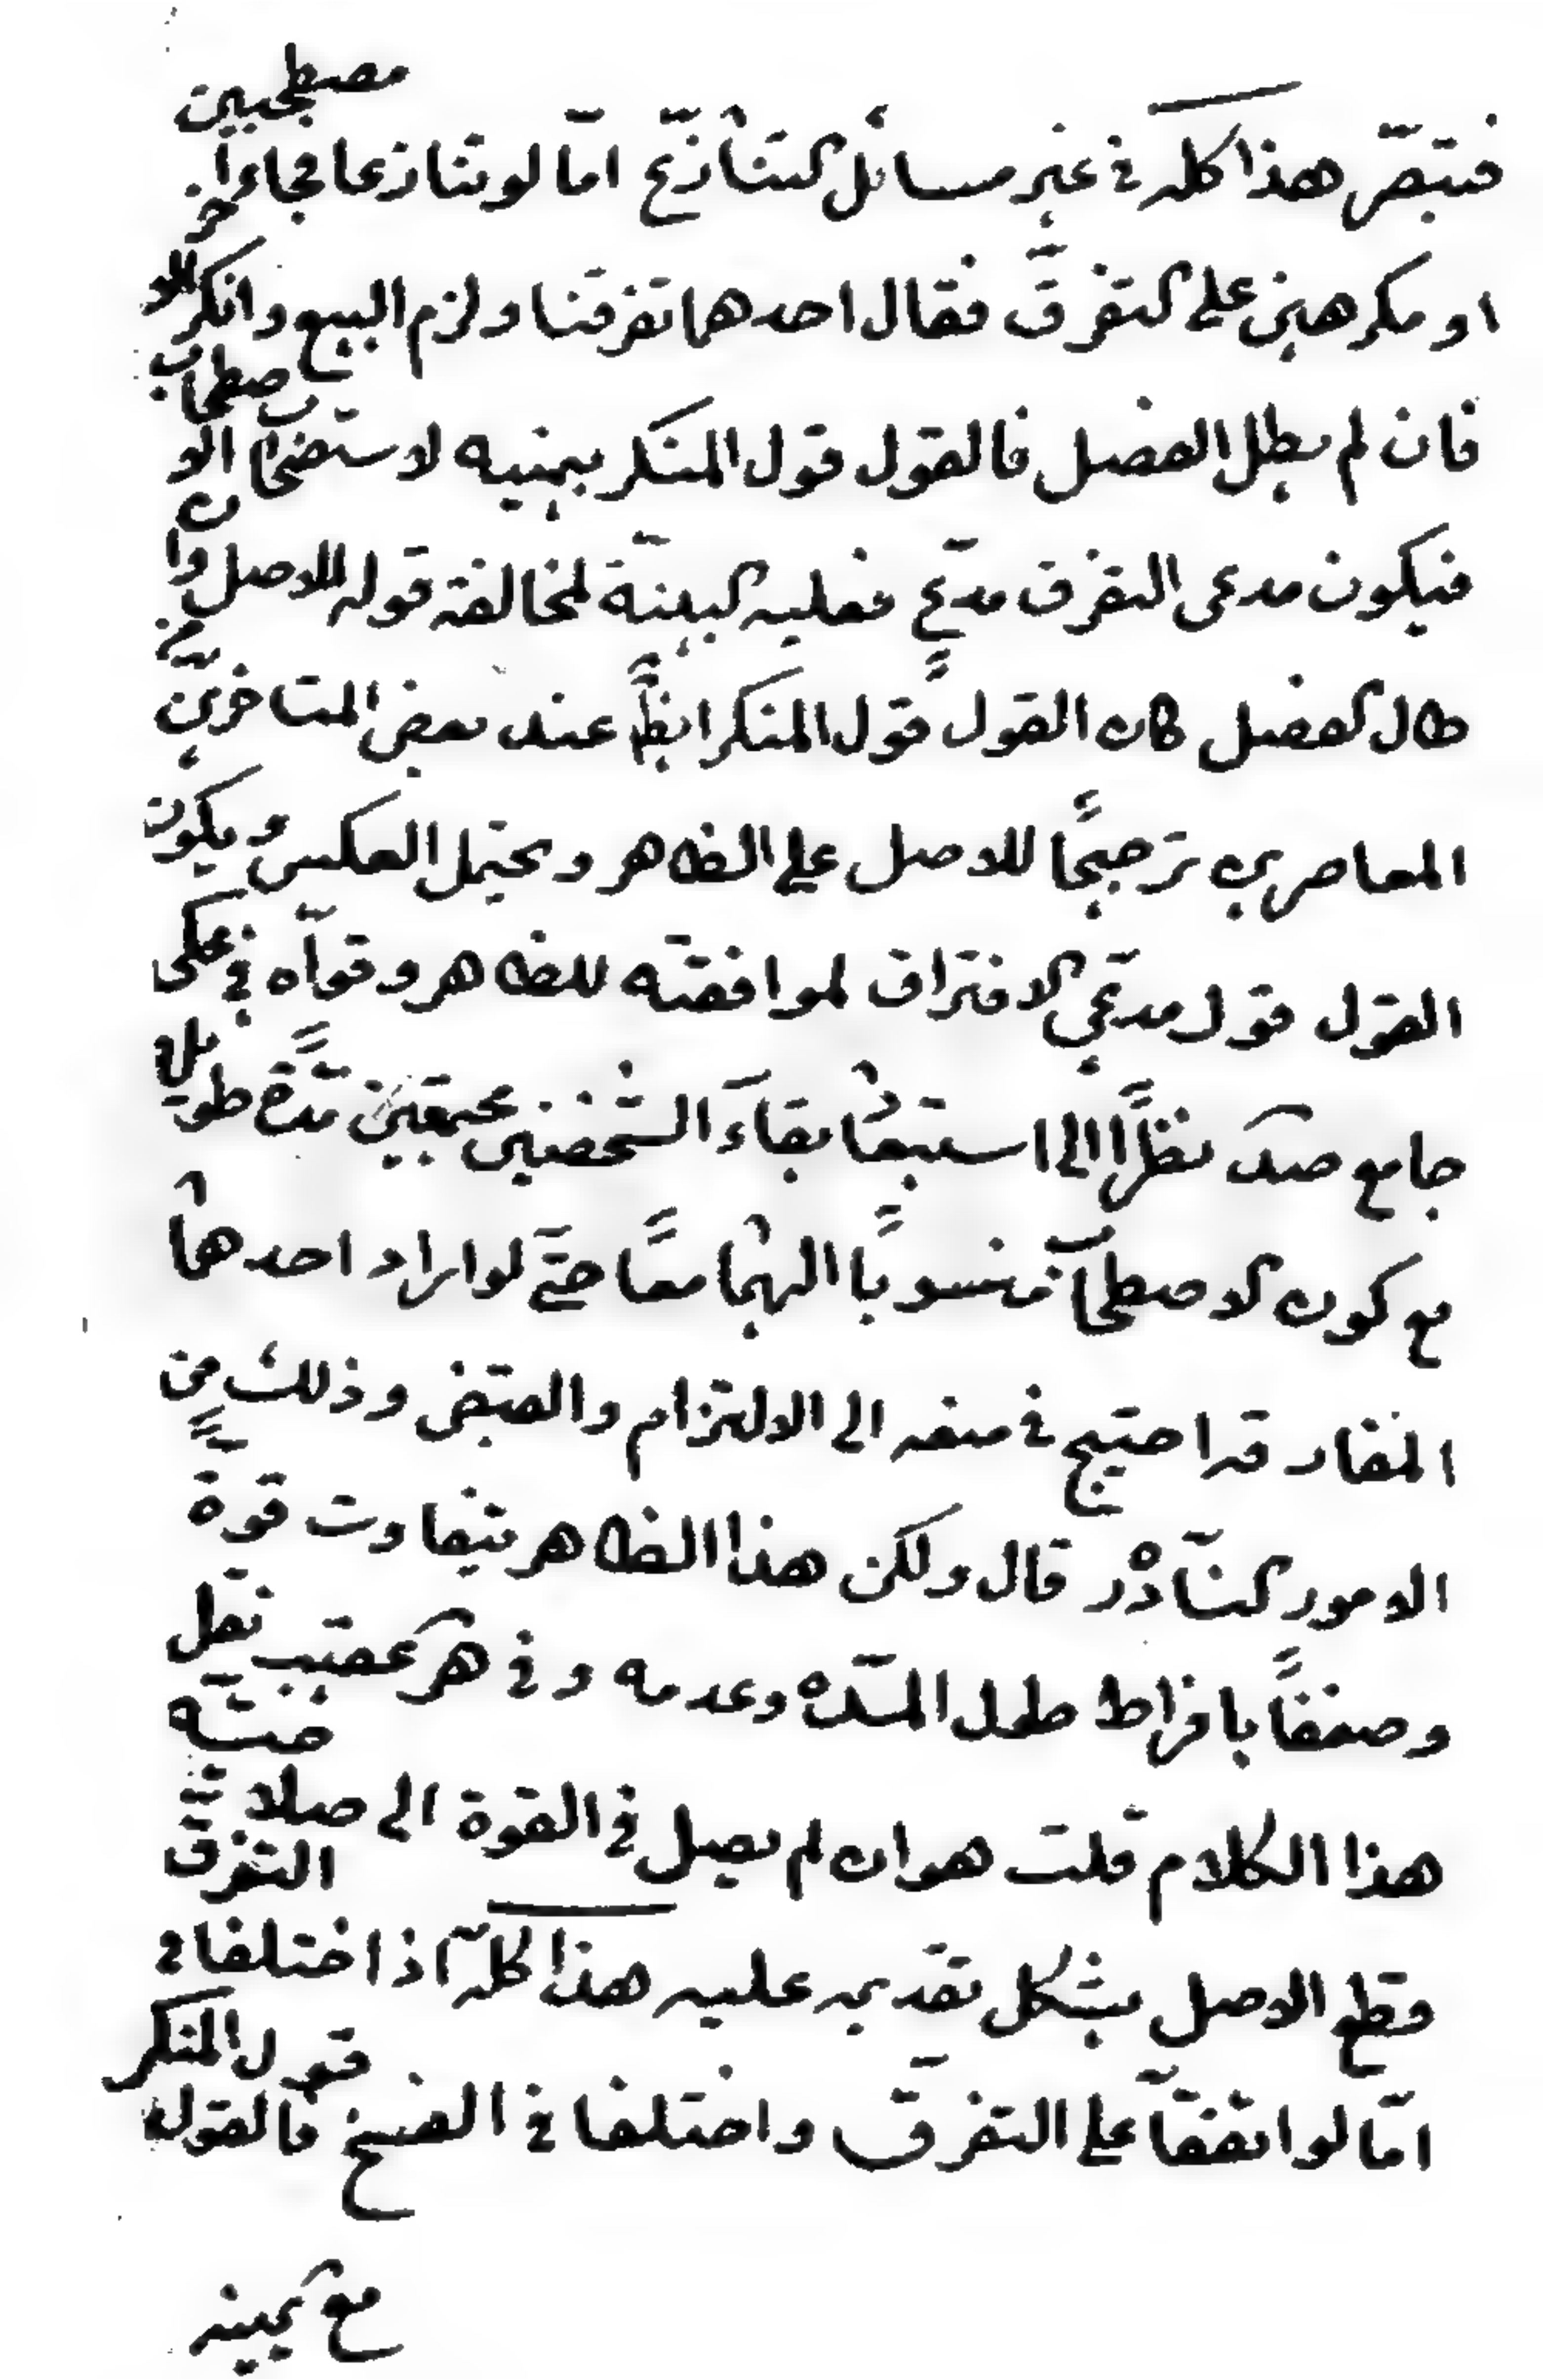 فتبصّر هذا كله في غير مسائل التنازع امّا لو تنازعا فجاءا مصطحبين
او مكرهين على التفرق فقال احدهما تفرقنا ولزم البيع وانكر الاخر
فان لم يطل الفصل فالقول قول المنكر بيمينه لاستصحاب الاصطحاب
فيكون مدعى التفرق مدعٍ فعليه البينة لمخالفته قوله للاصل وان
طال الفصل كان القول قول المنكر ايضًا عند بعض المتاخرين
المعاصرين ترجيحًا للاصل على الظاهر ويحتمل العكس ويكون
القول قول مدعي الافتراق لموافقته للظاهر وقوّاه في محكى
جامع صدك نظرًا الى استبعاد بقاء الشخصين مجتمعين مدّة طويلة
مع كون الاصطحاب منسوبًا اليهما معًا حتى لو اراد احدهما
المفارقة احتيج في منعه الى الالتزام والقبض وذلك من
الامور النادرة قال ولكن هذا الظاهر يتفاوت قوة
وضعفًا بافراط طول المدّه وعدمه وفي هر عقيب نقل
هذا الكلام قلت هو ان لم يصل في القوة الى صلاحيته
قطع الاصل يشكل تقديمه عليه هذا كلّه اذا اختلفا في التفرق
امّا لو اتفقا على التفرق واختلفا في الفسخ فالقول قول المنكر
مع يمينه